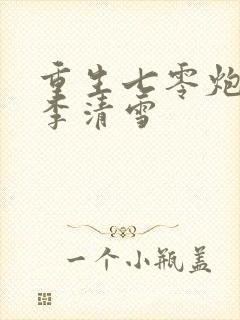 重生七零炮
李清雪
一个小瓶盖